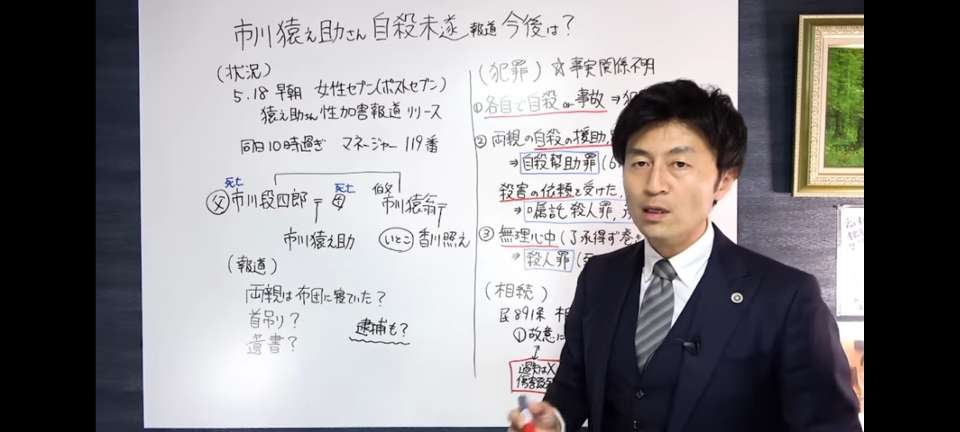 市川猿之助さん 自殺未遂 報道 今後は？
(状況)
5.18 早朝 女性セブン(ポストセブン)
猿之助さん 性加害報道 リリース
同日10時過ぎ マネージャー 119番
死亡 死亡 伯父
父 市川段四郎 母 市川猿翁
市川猿之助 いとこ 香川照之
(報道)
両親は布団に寝ていた？
首吊り？ 逮捕も？
遺書？
(犯罪) ☆事実関係不明
①各自で自殺 or 事故 ⇒ 犯
②両親の自殺の援助
⇒ 自殺幇助罪 (6
殺害の依頼を受けた
⇒ 嘱託殺人罪
③無理心中 (了承得ず巻き
⇒ 殺人罪
(相続)
民891条 相
①故意に
過失はX